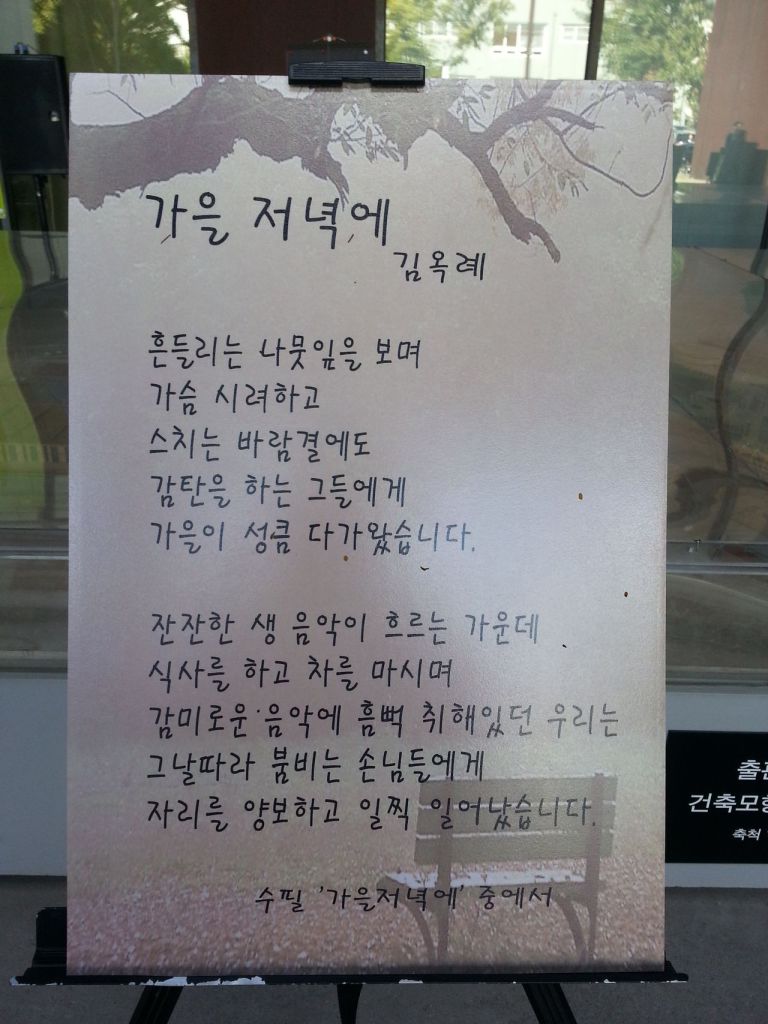 가을 저녁에
김옥례
흔들리는 나뭇잎을 보며
가슴 시려하고
스치는 바람결에도
감탄을 하는 그들에게
가을이 성큼 다가왔습니다.
잔잔한 생 음악이 흐르는 가운데
식사를 하고 차를 마시며
감미로운 음악에 흠뻑 취해있던 우리는
그날따라 붐비는 손님들에게
자리를 양보하고 일찍 일어났습니다.
수필 '가을저녁에' 중에서
건축모
축척